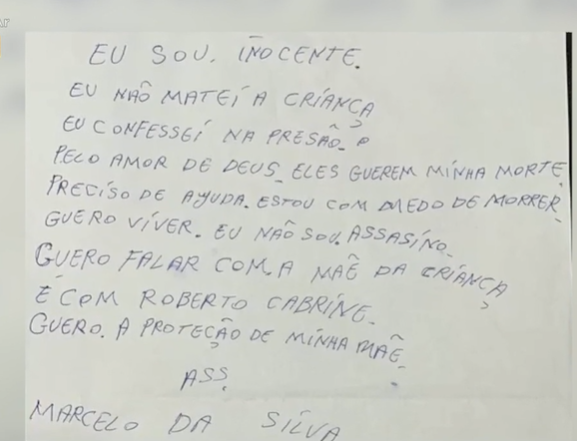 EU SOU. INOCENTE.
EU NÃO MATEI A CRIANÇA
EU CONFESSEI NA PRESÃO. P
PELO AMOR DE DEUS. ELES GUEREM MINHA MORTE.
PRECISO DE AYUDA. ESTOU COM MEDO DE MORRER.
GUERO VIVER. EU NÃO SOU. ASSASINO.
GUERO FALAR COM. A MAÊ DA CRIANÇA
E COM ROBERTO CABRINE.
GUERO. A PROTEÇÃO DE MINHA MAÊ.
ASS.
MARCELO DA SILVA